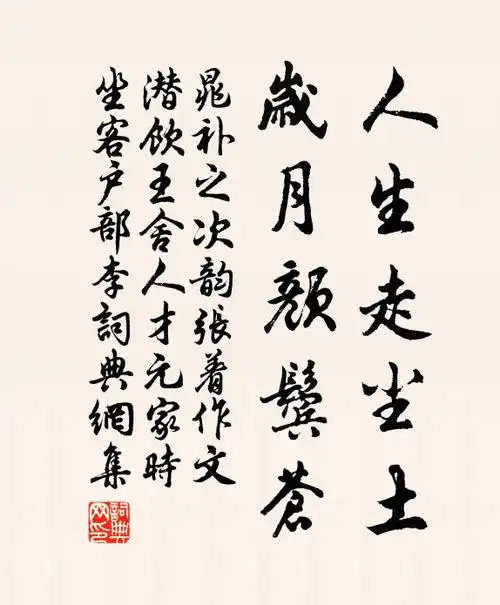 人生走尘土
歲月顏鬢蒼
晁补之次韻張着作文
潜饮王舍人才元家時
坐客户部李詞典網集
詞典网印